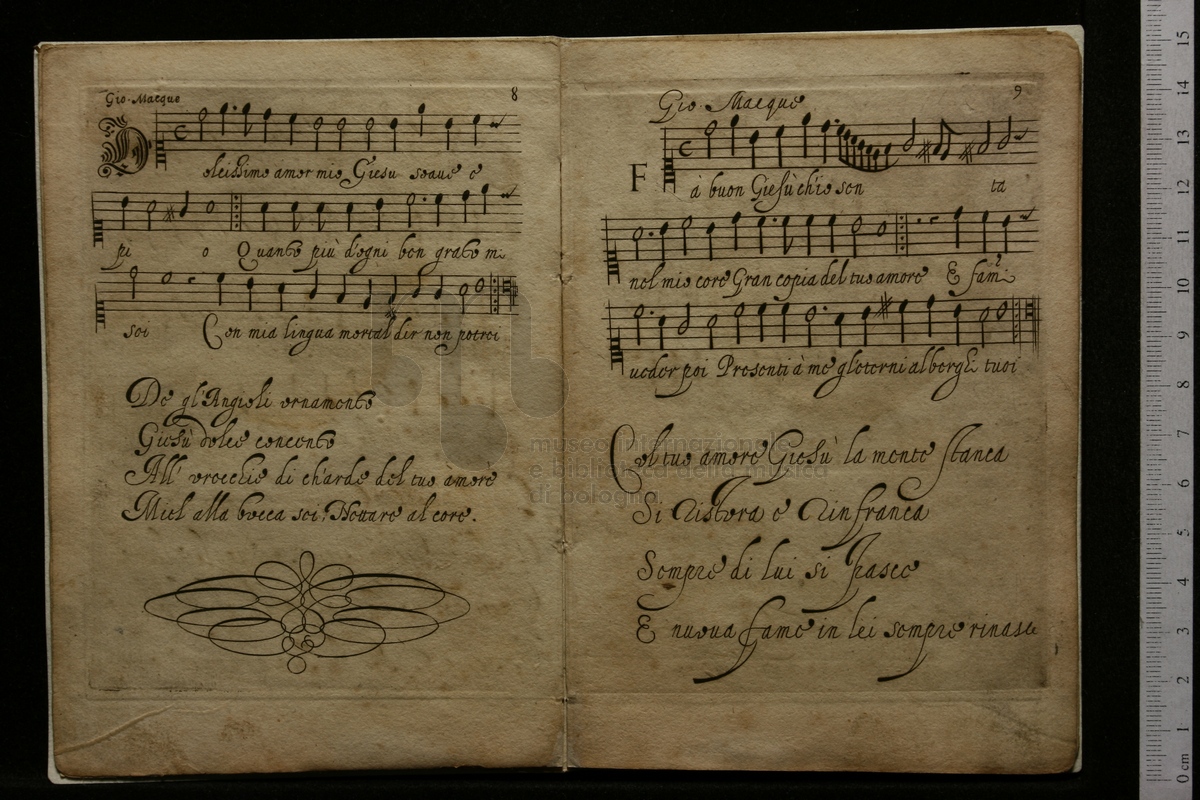 Gio. Macque
8
Dolcissimo amor mio Giesu soave e
pi o Quanto più d'ogni ben grato mi
sei Con mia lingua mortal dir non potrei
De gl'Angioli ornamento
Giesù dolce concento
All' orecchie di ch'arde del tuo àmore
Miel alla bocca sei, Nettare al core.
Gio. Macque
9
Fà buon Giesù ch'io sen ta
nel mio core Gran copia del tuo amore E fam.i
veder poi Presenti à me gl'eterni alberghi tuoi
Col tuo amore Giesù la mente stanca
Si Ristora e Rinfranca
Sempre di lui si Pasce
E nuova fame in lei sempre rinasce
museo internazionale
e biblioteca della musica
di bologna
0 cm 1 2 3 4 5 6 7 8 9 10 11 12 13 14 15